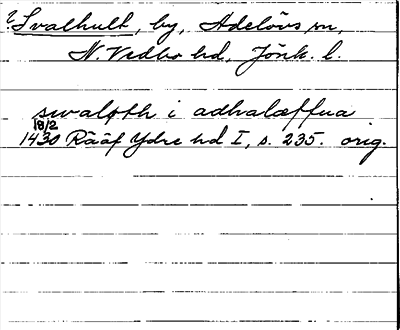 E Svalhult, by, Adelövs sn,
N. Vedbo hd, Jönk. l.
swaløth i adhalæffua
18/2
1430 Rääf Ydre hd I, s. 235. orig.